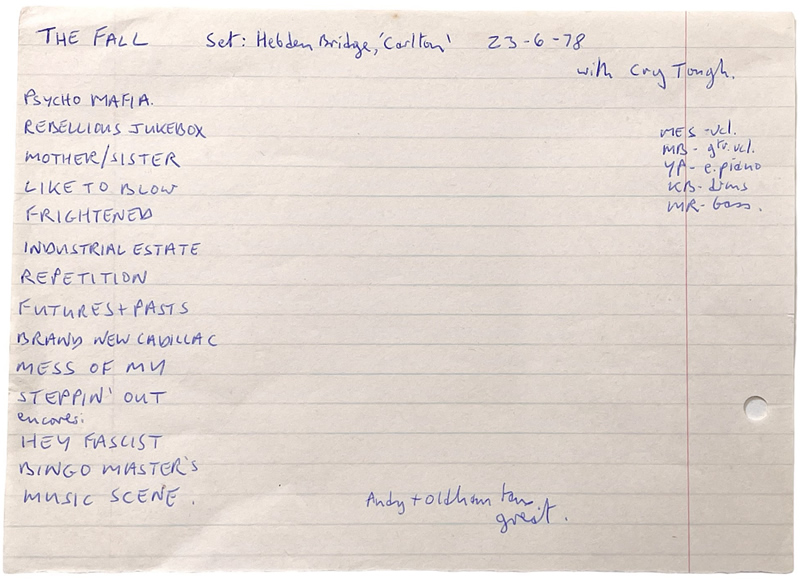 THE FALL Set: Hebden Bridge, 'Carlton' 23-6-78
with Cry Tough.
PSYCHO MAFIA.
REBELLIOUS JUKEBOX
MOTHER/SISTER
LIKE TO BLOW
FRIGHTENED
INDUSTRIAL ESTATE
REPETITION
FUTURES + PASTS
BRAND NEW CADILLAC
MESS OF MY
STEPPIN' OUT
encores:
HEY FASCIST
BINGO MASTER'S
MUSIC SCENE.
MES - vcl.
MB - gtr. vcl.
YP - e. piano
KB - drms
MR - bass.
Andy + Oldham
great.